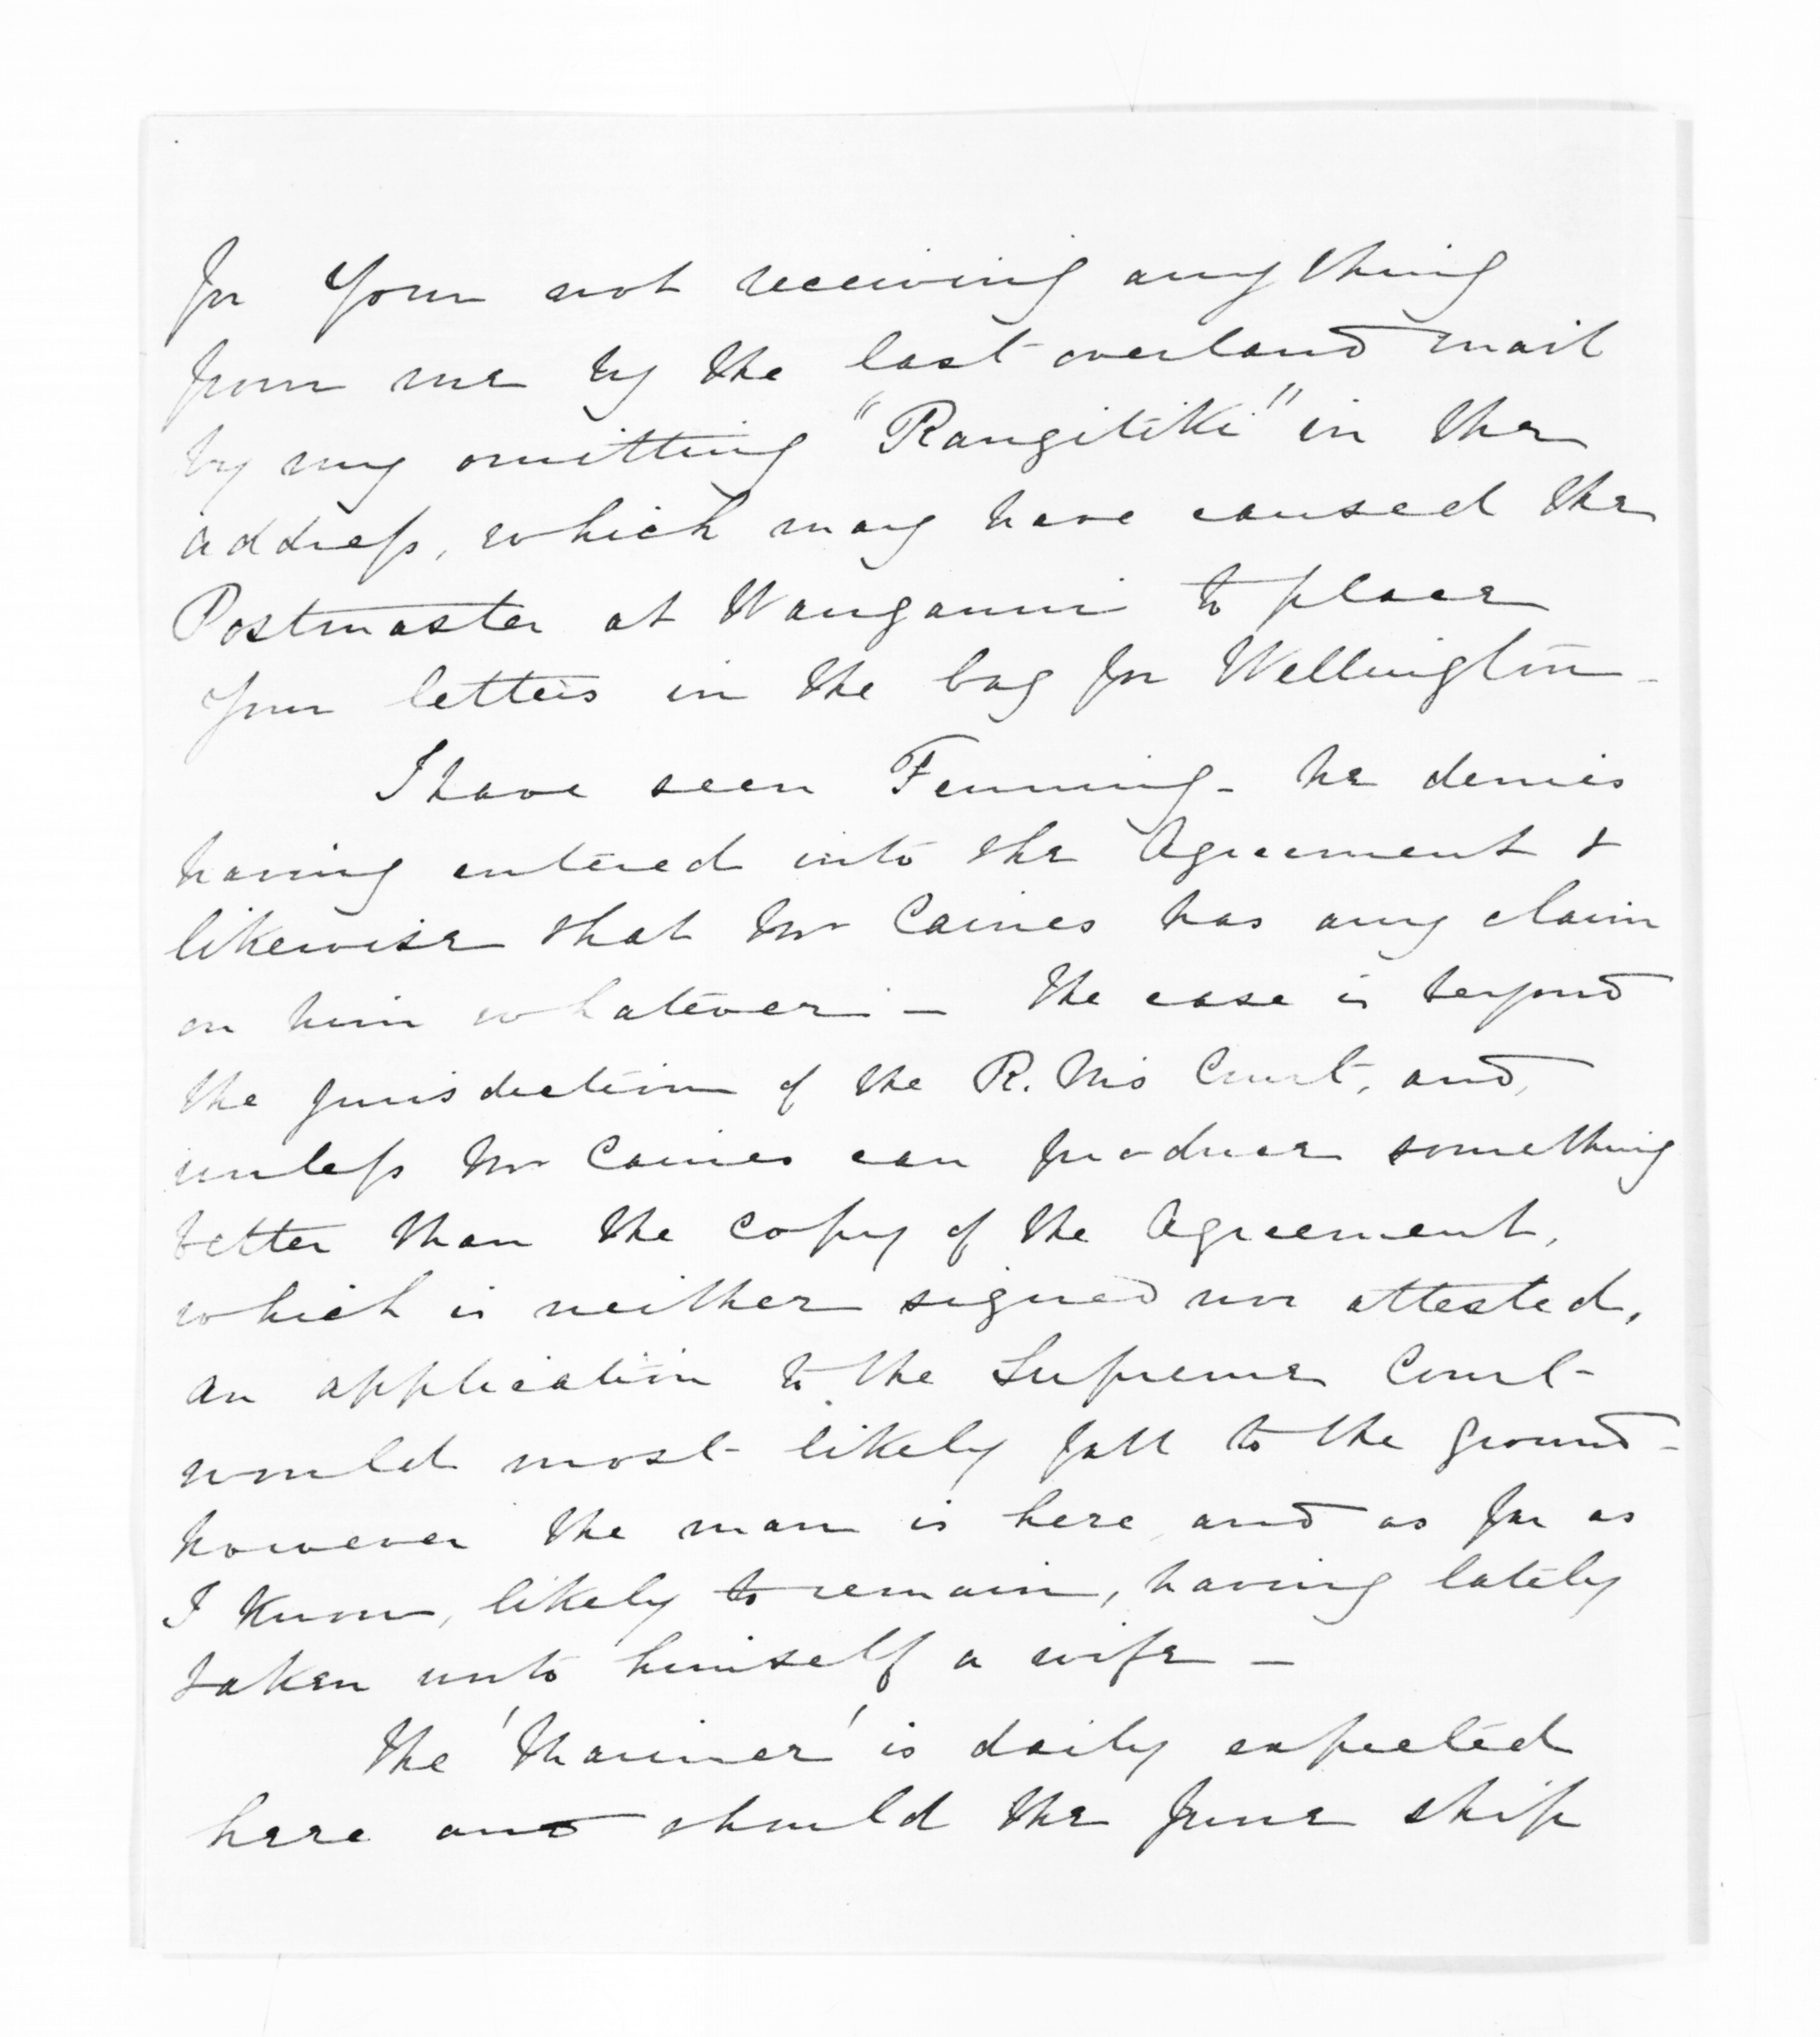 for your not receiving any thing
from me by the last overland mail
by my omitting "Rangitiki" in the
address, which may have caused the
Postmaster at Wanganui to place
your letters in the bag for Wellington -
I have seen Fenning - he denies
having entered into the Agreement &
likewise that Mr Caines has any claim
on him whatever: - The case is beyond
the jurisdiction of the R. M's Court, and,
unless Mr Caines can produce something
better than the copy of the Agreement,
which is neither signed nor attested,
an application to the Supreme Court -
would most likely fall to the ground -
however the man is here, and as far as
I know, likely to remain, having lately
taken unto himself a wife -
The 'Mariner' is daily expected
here and should the June ship